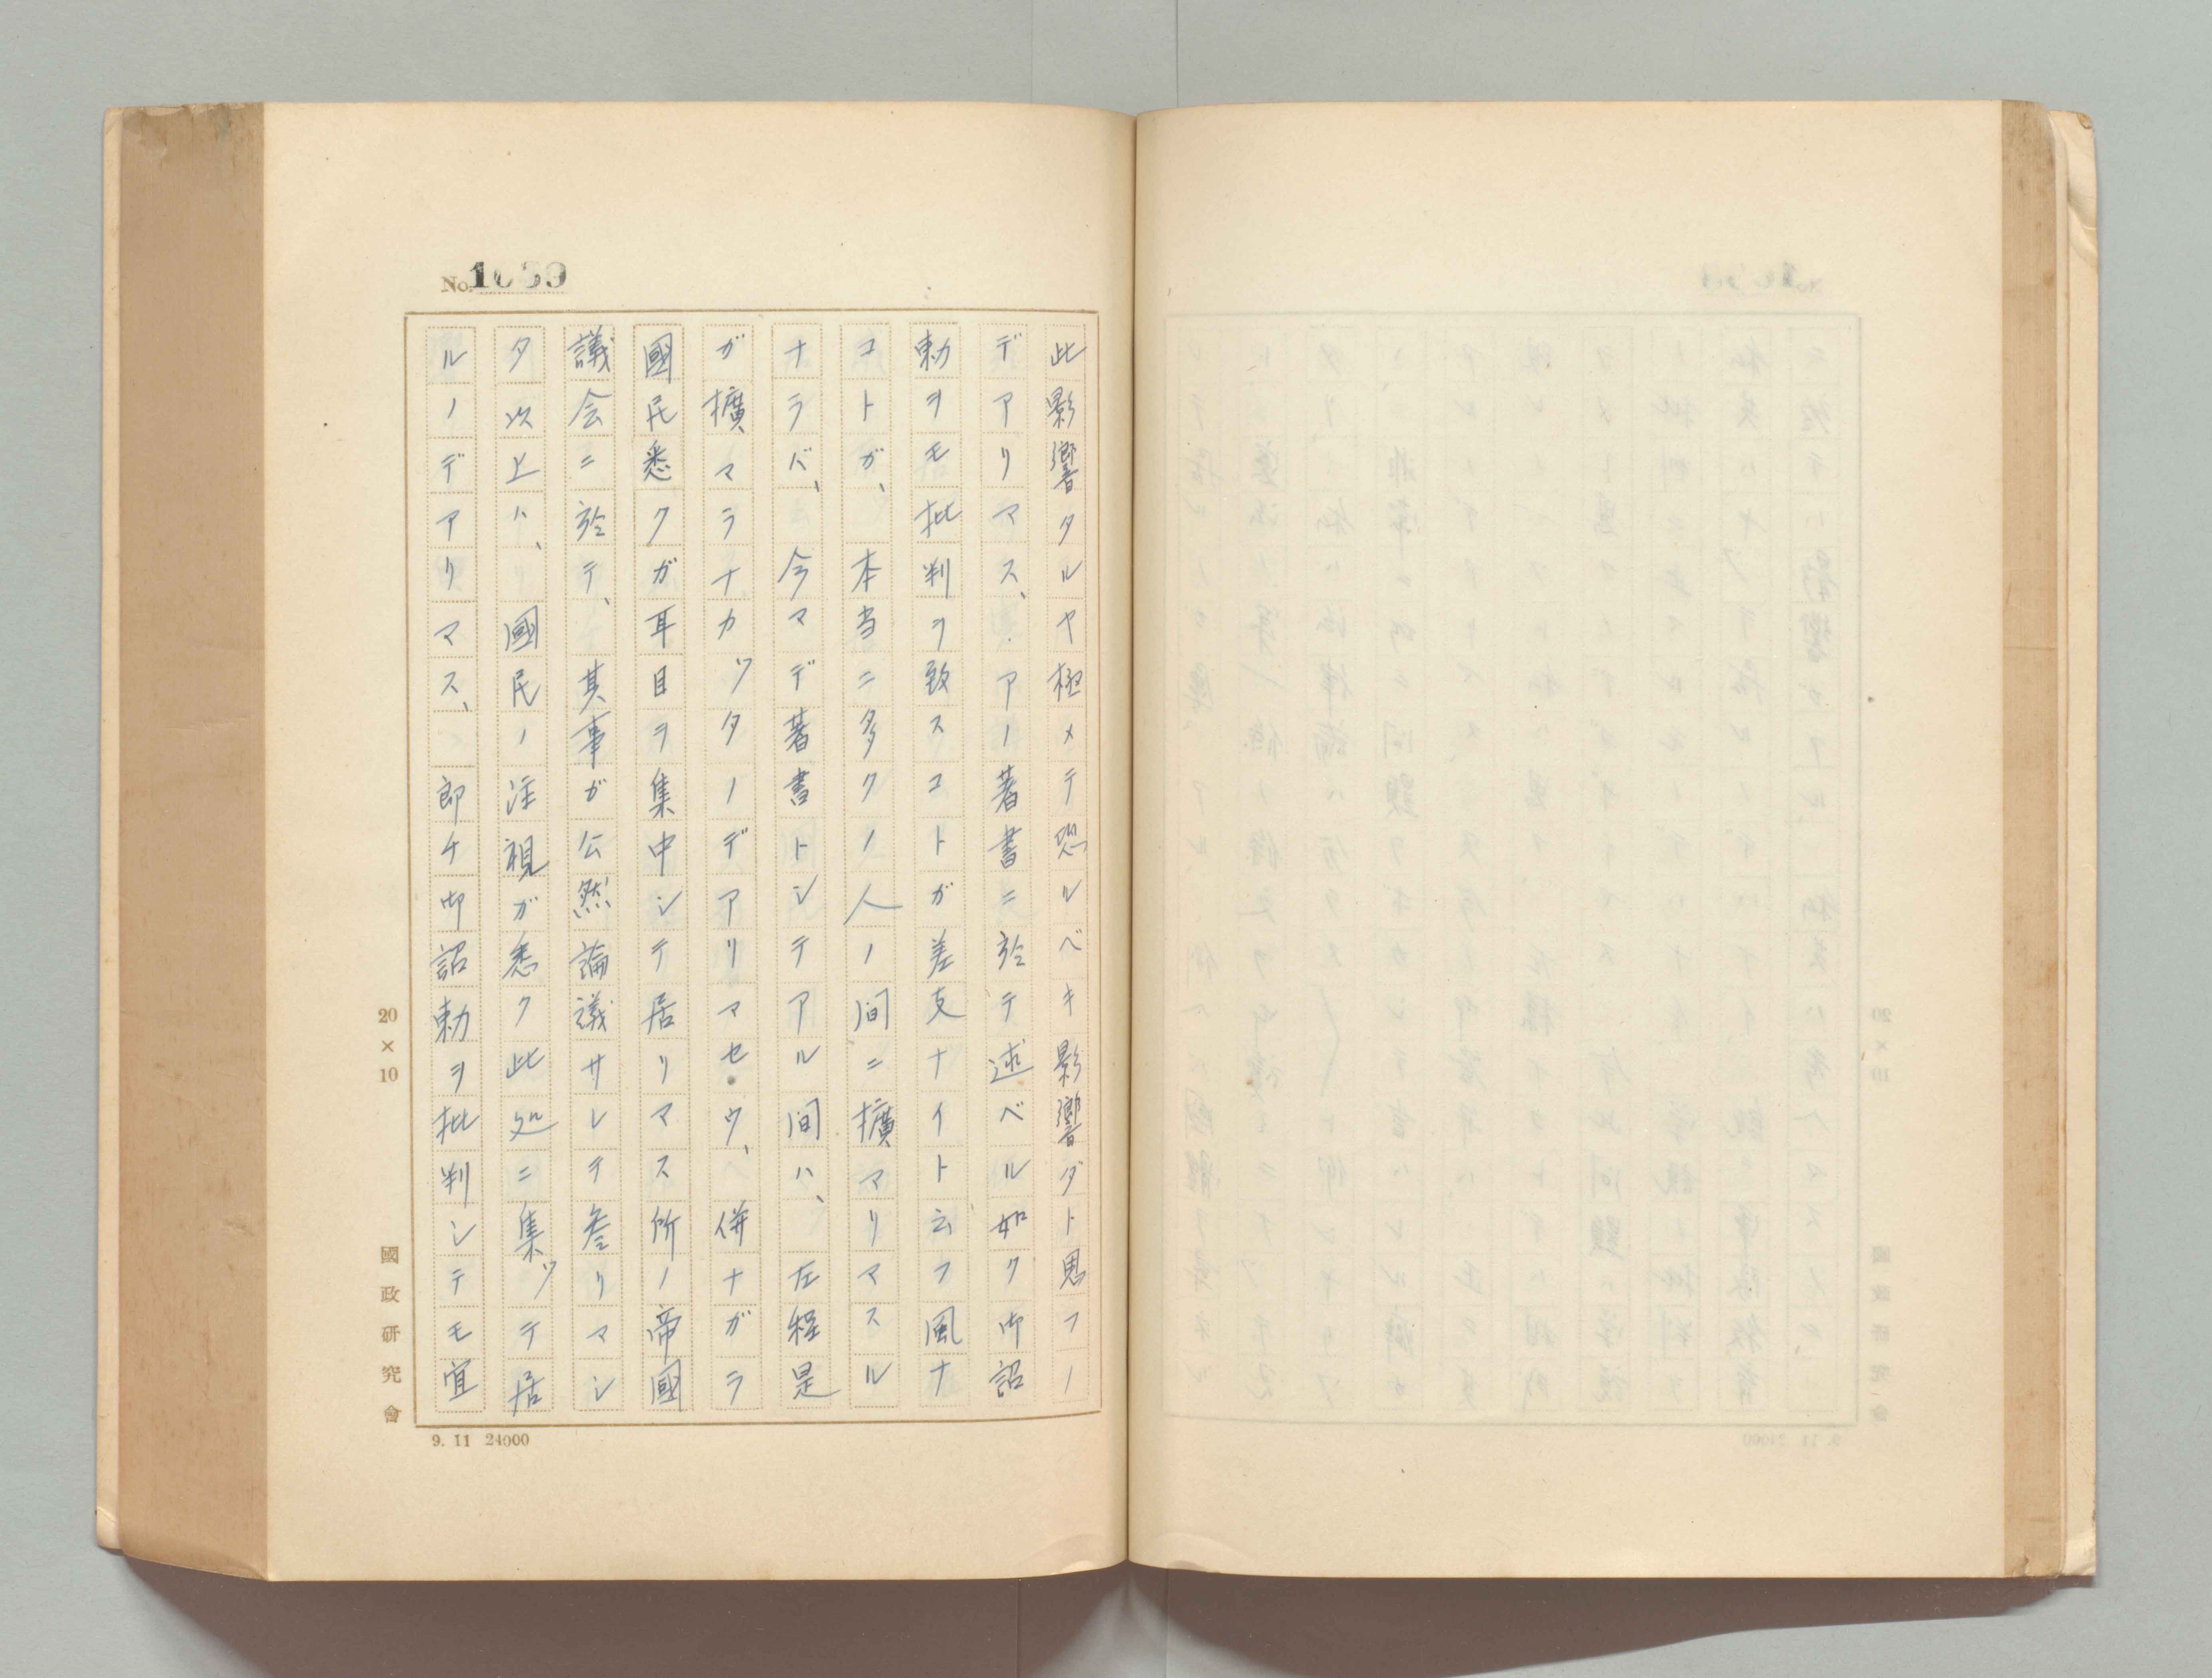 此影響タルヤ極メテ恐ルベキ影響ダト思フノ
デアリマス、アノ著書ニ於テ述ベル如ク御詔
勅ヲモ批判ヲ致スコトガ差支ナイト云フ風ナ
コトガ、本当ニ多クノ人ノ間ニ擴マリマスル
ナラバ、今マデ著書トシテアル間ハ、左程是
ガ擴マラナカッタノデアリマセウ、併ナガラ
國民悉クガ耳目ヲ集中シテ居リマス所ノ帝國
議会ニ於テ、其事ガ公然論議サレテ参リマシ
タ以上ハ、國民ノ注視ガ悉ク此処ニ集ッテ居
ルノデアリマス、即チ御詔勅ヲ批判シテモ宜
20×10
國政研究會
9. 11 24000